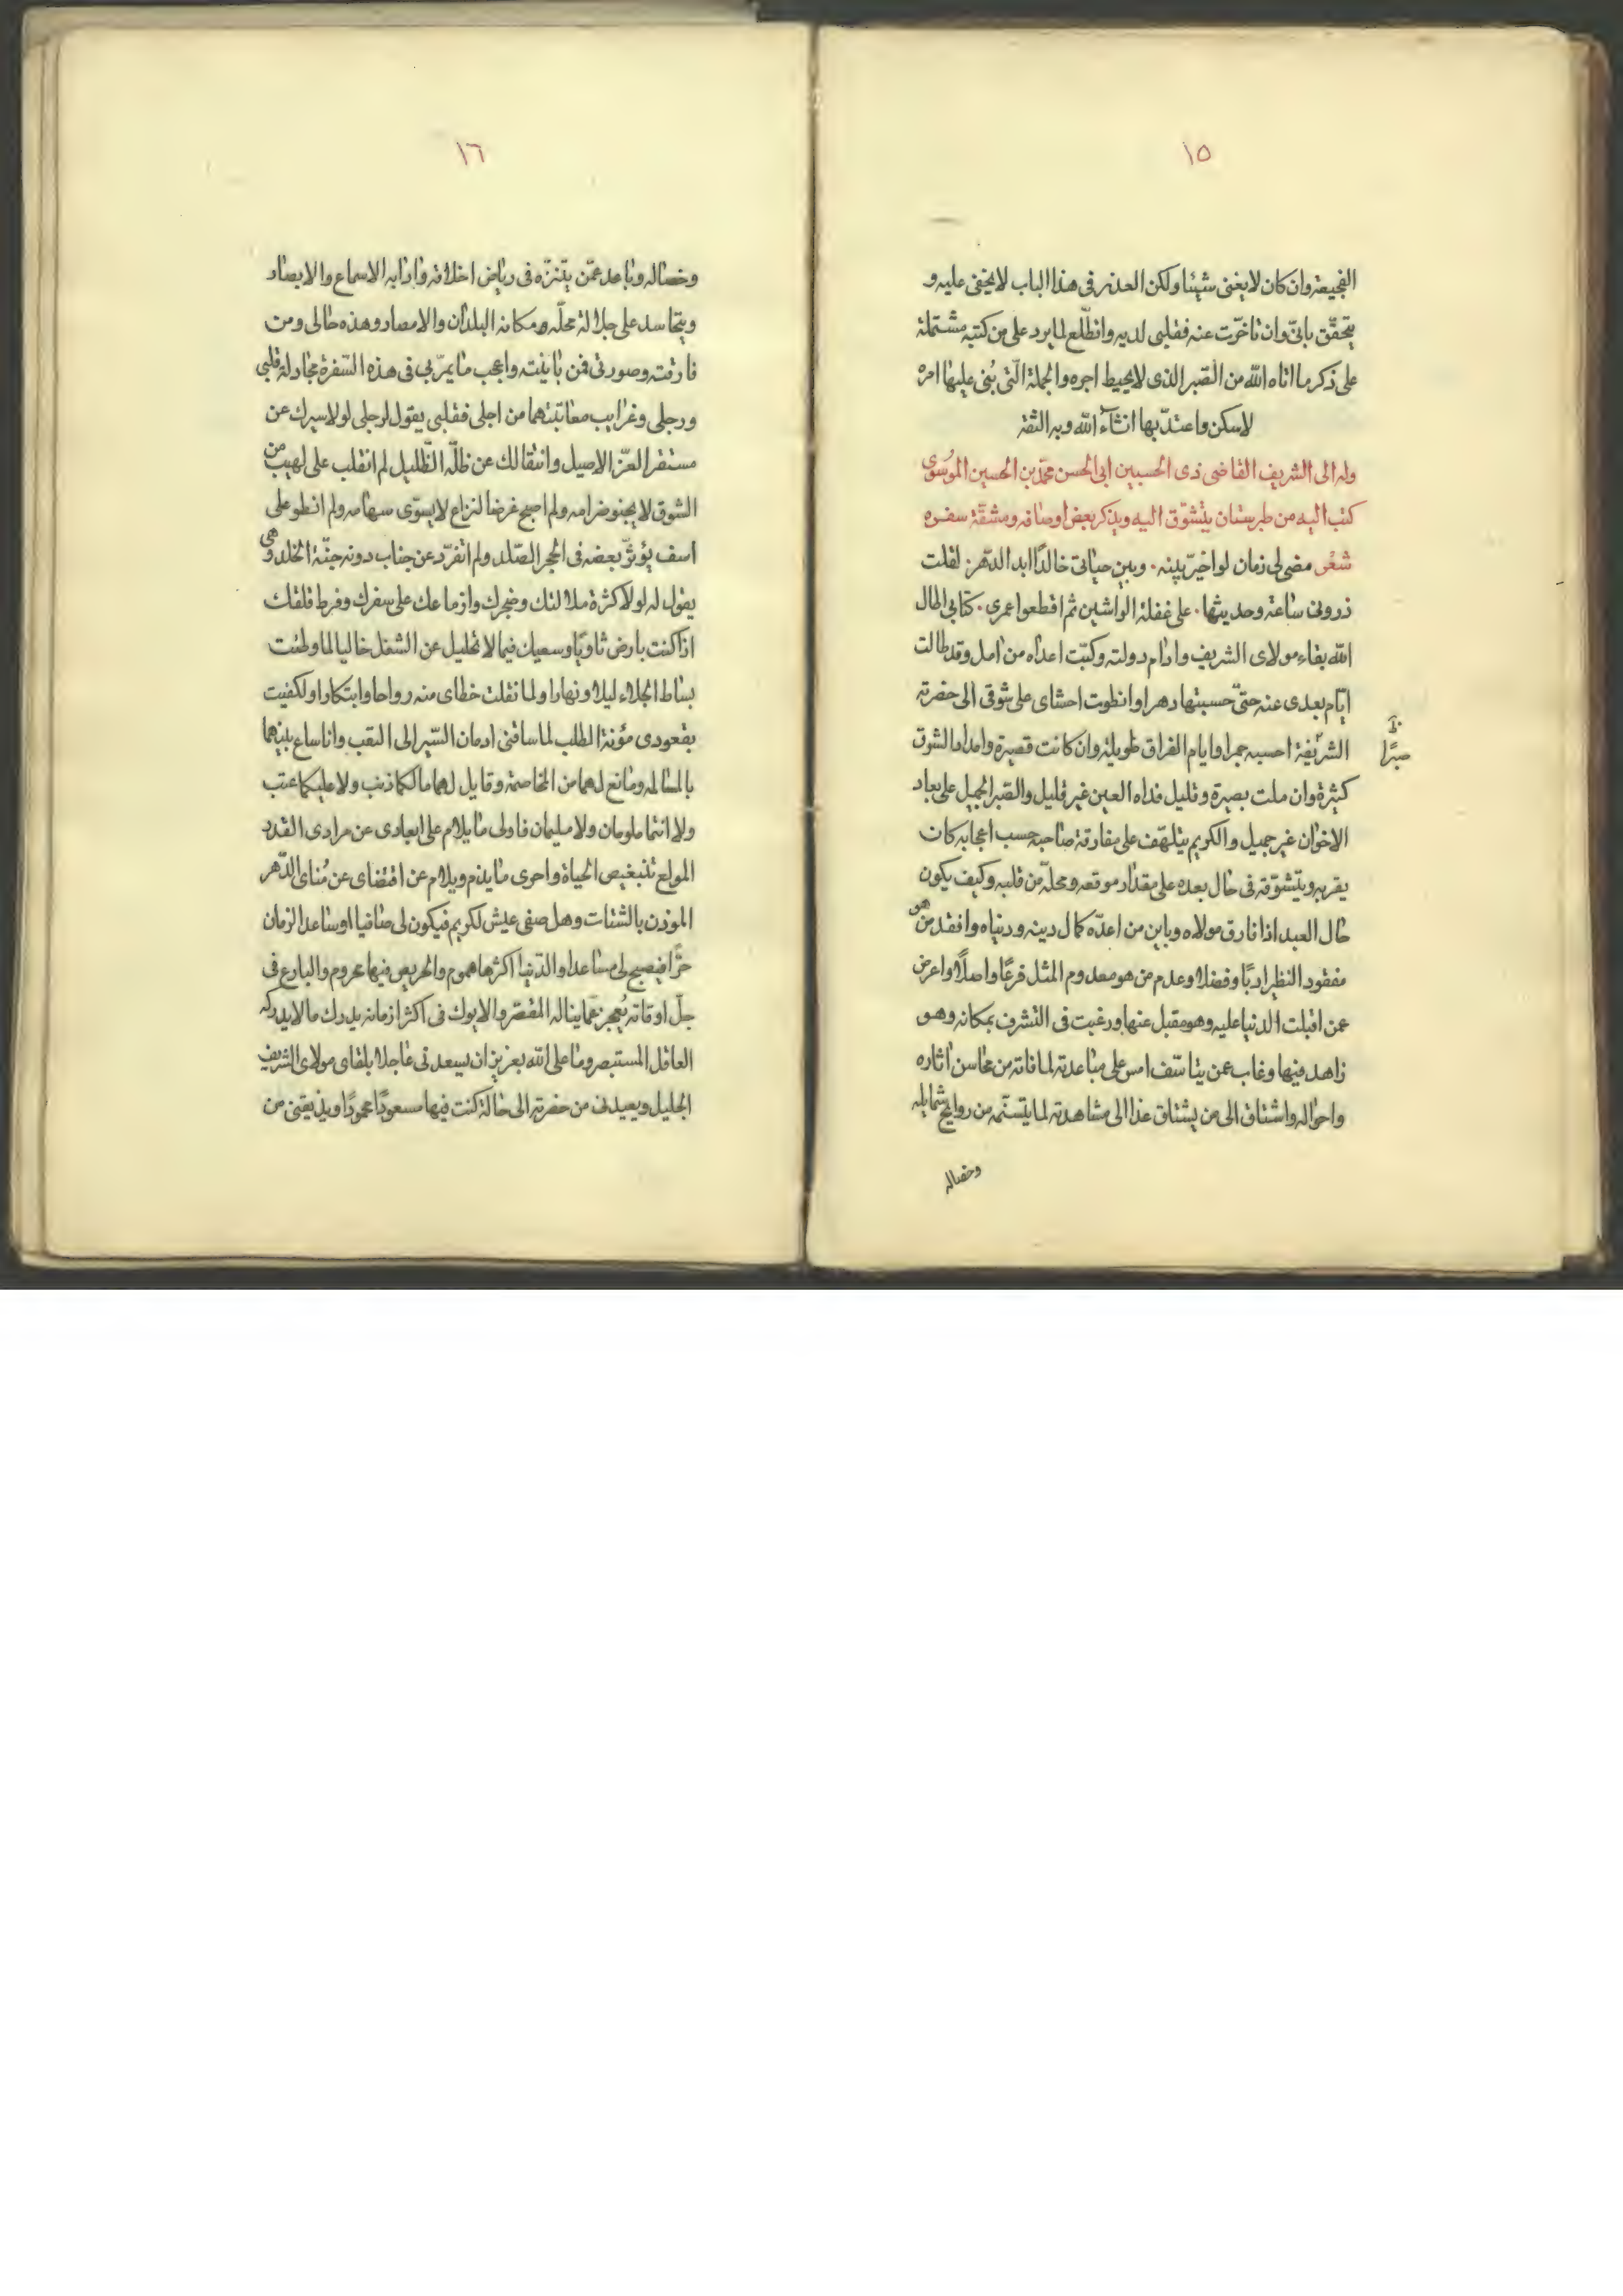 ١٥
الفجيعة وان كان لا يغنى شيئا ولكن العذر فى هذا الباب لا يخفى عليه و
يتحقّق بانّى وان تاخّرت عنه فقلبى لديه وانطّلع لما يرد على من كتبه مشتملة
على ذكر ما اتاه الله من الصّبر الذى لا يحيط اجره والجملة الّتى بُنى عليها امره
لاسكن واعتدّ بها انشاء الله وبه الثقة
وله الى الشريف القاضى ذى الحسبين ابى الحسن محمّد بن الحسين الموسوى
كتب اليه من طبرستان يتشوّق اليه ويذكر بعض اوصافه ومشقّة سفره
شعر مضى لى زمان لو اخيّر بينه ٠ وبين حياتى خالدًا ابد الدّهر ٠ لقلت
ذرونى ساعة وحديثها ٠ على غفلة الواشين ثم اقطعوا عمرى ٠ كتابى اطال
الله بقاء مولاى الشريف وادام دولته وكبّت اعداه من امل وقد طالت
ايّام بعدى عنه حتّى حسبتها دهرا وانطوت احشاى على شوقى الى حضرته
الشريفة احسبه جمرا وايام الفراق طويلة وان كانت قصيرة وامداد الشوق
صبرًا
كثيرة وان ملت بصيرة وقليل فداه العين غير قليل والصّبر الجميل على بعاد
الاخوان غير جميل والكريم يتلهّف على مفارقة صاحبه حسب اعجابه كان
بقربه ويتشوّقه فى حال بعده على مقدار موقعه ومحلّه من قلبه وكيف يكون
حال العبد اذا فارق مولاه وباين من اعدّه كمال دينه ودنياه وافقد من هو
مفقود النظير ادبًا وفضلا وعدم من هو معدوم المثل فرعًا واصلًا واعرض
عمن اقبلت الدنيا عليه وهو مقبل عنها ورغبت فى التشرف بمكانه وهو
زاهد فيها وغاب عمن يتاسّف امس على مباعدته لما فاته من محاسن اثاره
واحواله واشتاق الى من يشتاق غدا الى مشاهدته لما يتنسّمه من روايح شمايله
وخصاله
١٦
وخصاله وباعد عمّن يتنزّه فى رياض اخلاقه وادابه الاسماع والابصار
ويتحاسد على جلالة محلّه ومكانه البلدان والامصار وهذه حالى ومن
فارقته وصورتى فمن باينته واعجب ما يمرّ بى فى هذه السّفرة مجادلة قلبى
ورجلى وغرايب معاتبتهما من اجلى فقلبى يقول لرجلى لولا سيرك عن
مستقر العزّ الاصيل وانتقالك عن ظلّه الظّليل لم انقلب على لهيب من
الشوق لا يخبو ضرامه ولم اصبح غرضا لنزاع لا يسوّى سهامه ولم انطو على
اسف يؤثّر بعضه فى الحجر الصّلد ولم اتفرّد عن جناب دونه جنّة الخلد وهى
يقول له لولا كثرة ملالتك وضجرك وازماعك على سفرك وفرط قلقك
اذا كنت بارض ثاويًا وسعيك فيما لا تخليل عن الشغل خاليا لما وطئت
بساط الجلاء ليلا ونهارا ولما نقلت خطاى منه رواحا وابتكارا ولكفيت
بقعودى مؤنة الطلب لما ساقنى ادمان السّير الى النقب وانا ساع بينهما
بالمسالمه ومانع لهما من المخاصمة وقايل لهما ما لكما ذنب ولا عليكما عتب
ولا انتما ملومان ولا مليمان فاولى ما يلام على ابعادى عن مرادى القدر
المولع بتنغيص الحياة واحرى ما يذم ويلام عن اقتضاى عن مُناى الدّهر
الموذن بالشتات وهل صفى عيش لكريم فيكون لى صافيا او ساعد الزمان
حرًّا فيصبح لى مساعدا والدّنيا اكثرها هموم والحريص فيها محروم والبارع فى
جلّ اوقاته يُعجز عمّا يناله المقصر والايوك فى اكثر ازمانه يدرك ما لا يدركه
العاقل المستبصر وما على الله بعزيز ان يسعدنى عاجلا بلقاى مولاى الشريف
الجليل ويعيدنى من حضرته الى حالة كنت فيها مسعودًا محمودًا ويذيقنى من